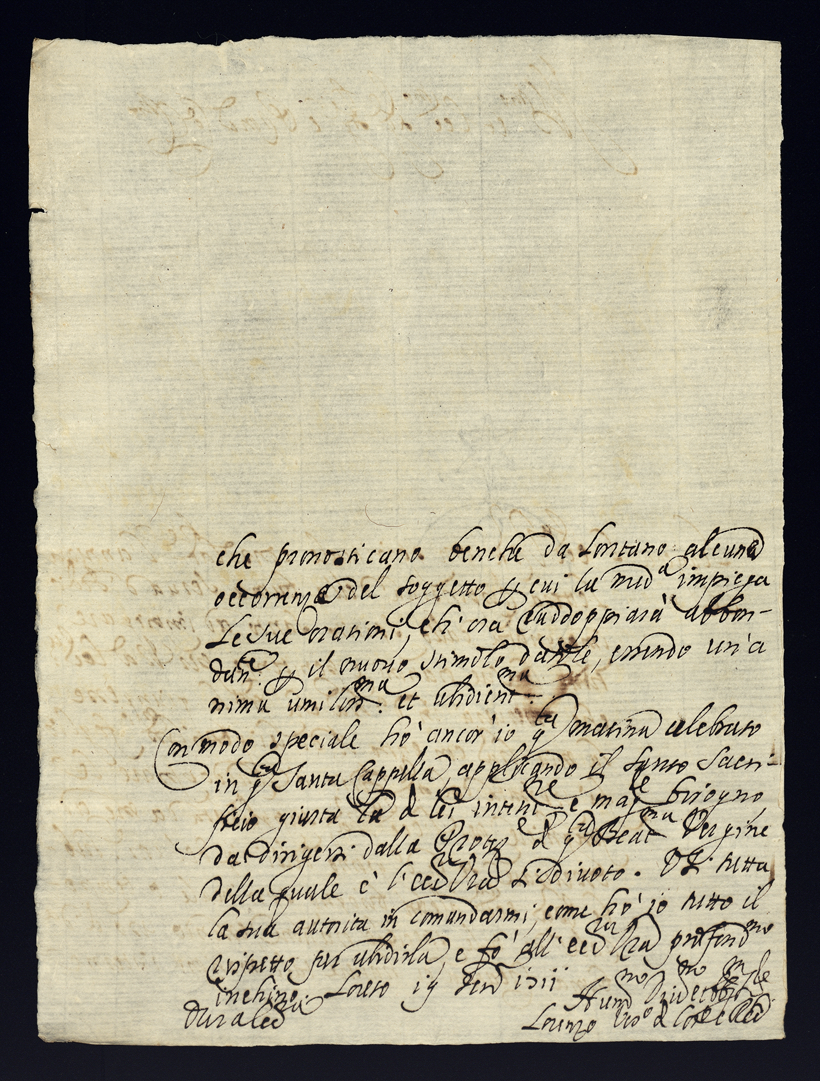 che pronosticano benche da lontano alcuna
occorrenza del soggetto p cui la med.ª impiega
le sue orationi, et ora raddoppiarà abbon-
dan.te p il nuovo stimolo datole, essendo un'a
nima umilis.ma et ubidient.ma
Con modo speciale hò ancor'io q.ta matina celebrato
in q.ta Santa Cappella, applicando il Santo Sacri-
ficio giusta la di lei inten.ne e mag.re bisogno,
da dirigersi dalla di q.ta Beat.ma Vergine
della quale è l'ecc.za V.ra sì divoto. Di tutta
la sua autorità in comandarmi, come hò io tutto il
rispetto per ubidirla, e fò all'ecc.za V.ra profond.mo
inchino. Loreto 19
Hum.mo
Lorenzo